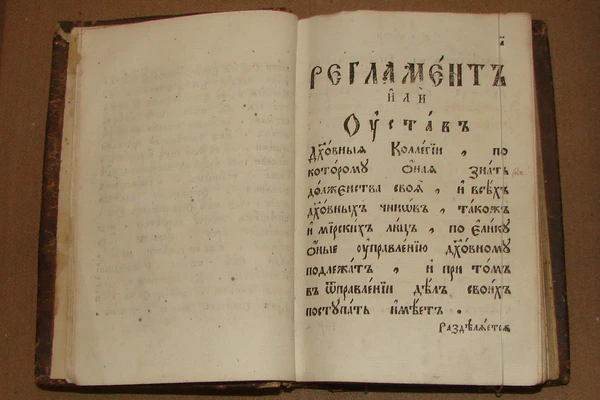 РЕГЛАМЕ́НТЪ
и҆лѝ
Оу҆ста́въ
Дꙋхо́вныѧ Коллегїи , по
кото́рому ѻ҆наѧ зна́ть
до́лженства своѧ̀ , и҆ всѣ́хъ
дꙋхо́вныхъ чинѡ́въ , та́кожъ
и҆ мїрски́хъ ли́цъ , по є҆ли́ку
ѻ҆ные оу҆правле́нїю дꙋхо́вному
подлежа́тъ , и҆ при то́мъ
въ ѿправле́нїи дѣ́лъ свои́хъ
поступа́ть и҆мѣ́етъ .
Раздѣлѧ́етсѧ